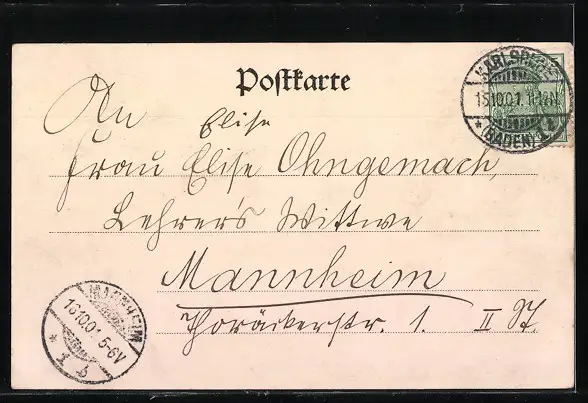 Postkarte
KARLSRUHE
15.10.01. 11-12N.
* (BADEN) 1. *
An Elise
Frau Elise Ohngemach,
Lehrer's Wittwe
Mannheim
Thoräckerstr. 1. II St.
MANNHEIM
16.10.01. 5-6V
* 1. b